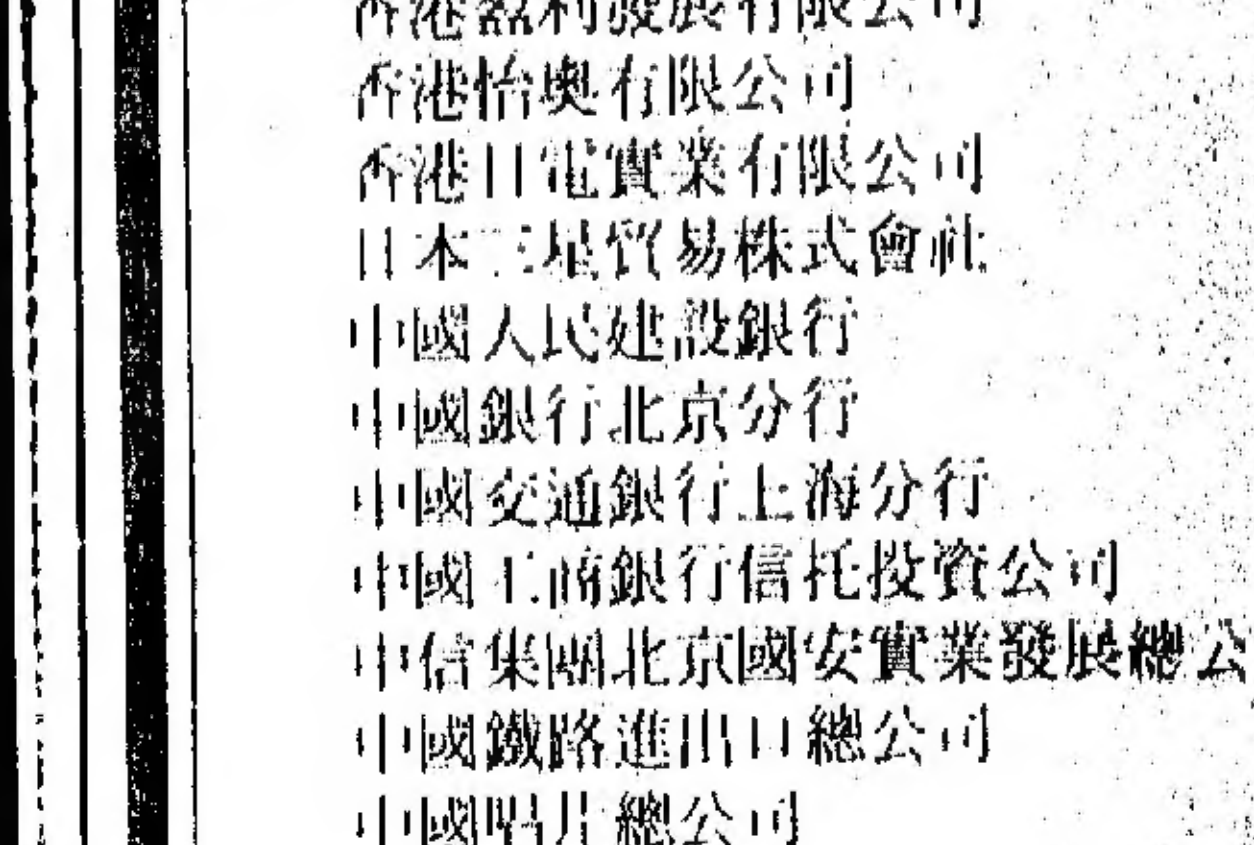 香港盈利發展有限公司
香港怡奧有限公司
香港日電實業有限公司
日本三星貿易株式會社
中國人民建設銀行
中國銀行北京分行
中國交通銀行上海分行
中國工商銀行信托投資公司
中信集團北京國安實業發展總公
中國鐵路進出口總公司
中國唱片總公司